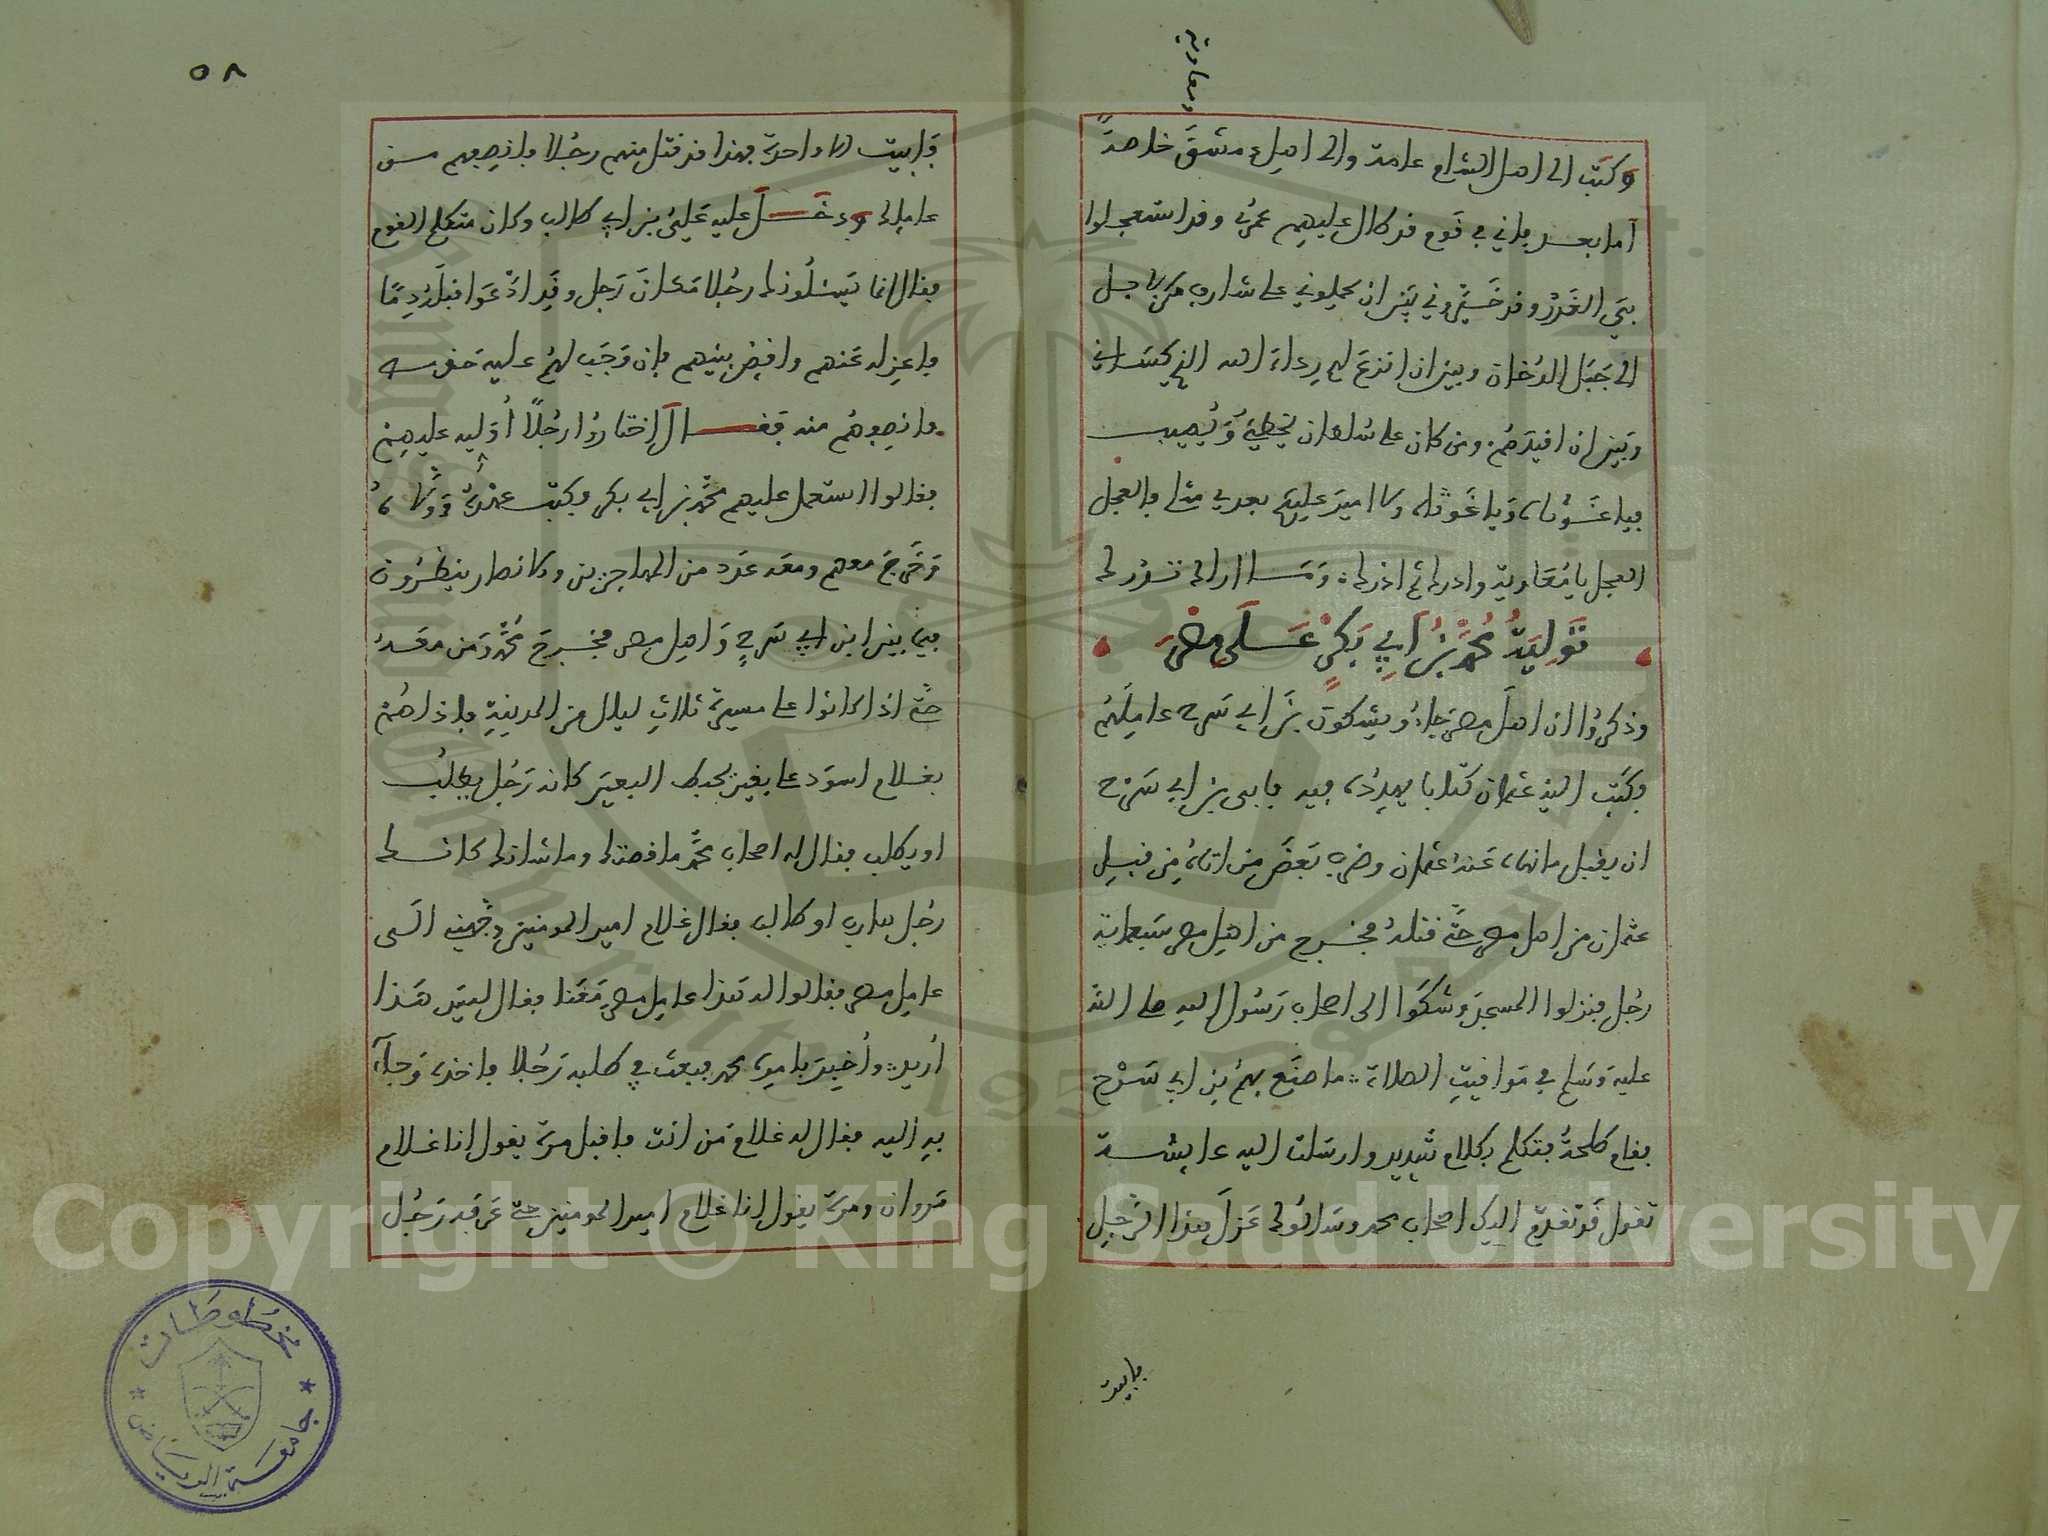 ومعاوية
وكتب الى اهل الشام عامة والى اهل دمشق خاصة
أما بعد فاني في قوم قد طال عليهم عمري وقد استعجلوا
بي القدر وقد خيروني بين ان يحملوني على شارف من الابل
الى جبل الدخان وبين ان انزع لهم رداء الله الذي كساني
وبين ان اقيدهم ومن كان على سلطان يخطئ ويصيب
فيا غوثاه ويا غوثاه ولا امير عليكم بعدي مثلي فالعجل
العجل يا معاوية وادرك ثم ادرك وما اراك تدرك
تولية محمد بن أبي بكر على مصر
وذكروا ان اهل مصر جاءوا يشكون بن ابي سرح عاملهم
فكتب اليه عثمان كتابا يهدده فيه فابى بن ابي سرح
ان يقبل ما نهاه عنه عثمان وضرب بعض من اتاه من قبل
عثمان من اهل مصر حتى قتله فخرج من اهل مصر سبعمائة
رجل فنزلوا المسجد وشكوا الى اصحاب رسول الله صلى الله
عليه وسلم في مواقيت الصلاة ما صنع بهم بن ابي سرح
فقام طلحة فتكلم بكلام شديد وارسلت اليه عايشة
تقول قد تقدم اليك اصحاب محمد وسالوك عزل هذا الرجل
فابيت
٥٨
فابيت الا واحدة فهذا قد قتل منهم رجلا فانصفهم من
عاملك ودخل عليه علي بن ابي طالب وكان متكلم القوم
فقال انما يسئلونك رجلا مكان رجل وقد ادعوا قبله دما
فاعزله عنهم واقض بينهم فان وجب لهم عليه حق
فانصفهم منه فقال اختاروا رجلا أوليه عليهم
فقالوا استعمل عليهم محمد بن ابي بكر فكتب عهده وولاه
وخرج معهم ومعه عدد من المهاجرين والانصار ينظرون
فيما بين ابن ابي سرح واهل مصر فخرج محمد ومن معه
حتى اذا كانوا على مسيرة ثلاث ليال من المدينة فاذا هم
بغلام اسود على بعير يخبط البعير كانه رجل يطلب
او يطلب فقال له اصحاب محمد ما قصتك وما شانك كانك
رجل هارب او طالب فقال غلام امير المومنين وجهني الى
عامل مصر فقالوا له هذا عامل مصر معنا فقال ليس هذا
أريد وأخبر بامره محمد فبعث في طلبه رجلا فاخذه وجاء
به إليه فقال له غلام من انت فاقبل مرة يقول انا غلام
مروان ومرة يقول انا غلام امير المومنين حتى عرفه رجل
مخطوطات
جامعة الرياض
Copyright © King Saud University
1957